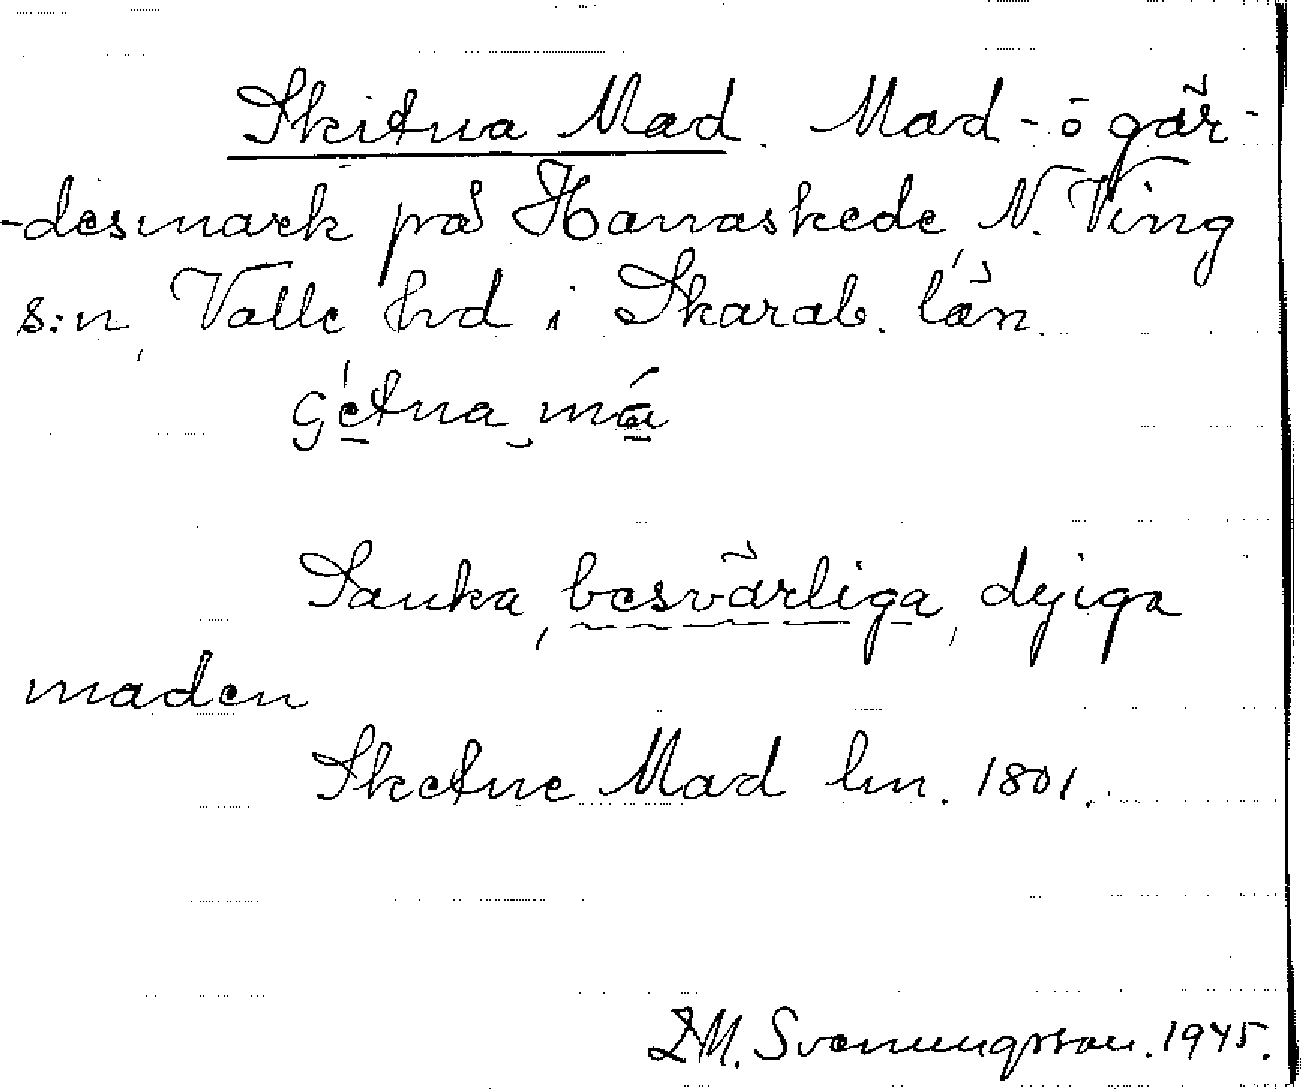 Skitna Mad. Mad- o gär-
-desmark på Hanaskede, N. Ving
s:n, Valle hrd i Skarab. län.
Sanka, besvärliga, dyiga
maden
Sketne Mad lm. 1801.
D.M. Svenungsson. 1945.